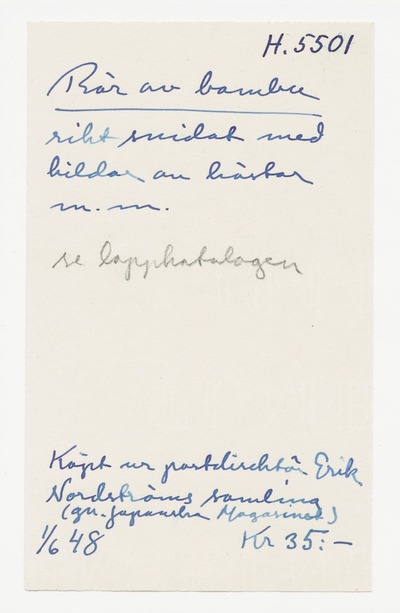 H.5501
Rör av bambu
rikt snidat med
bilder av hästar
m.m.
se lapphatalogen
Köpt ur postdirektör Erik
Nordströms samling
(gn. Japanska Magasinet)
1/6 48 Kr 35:-